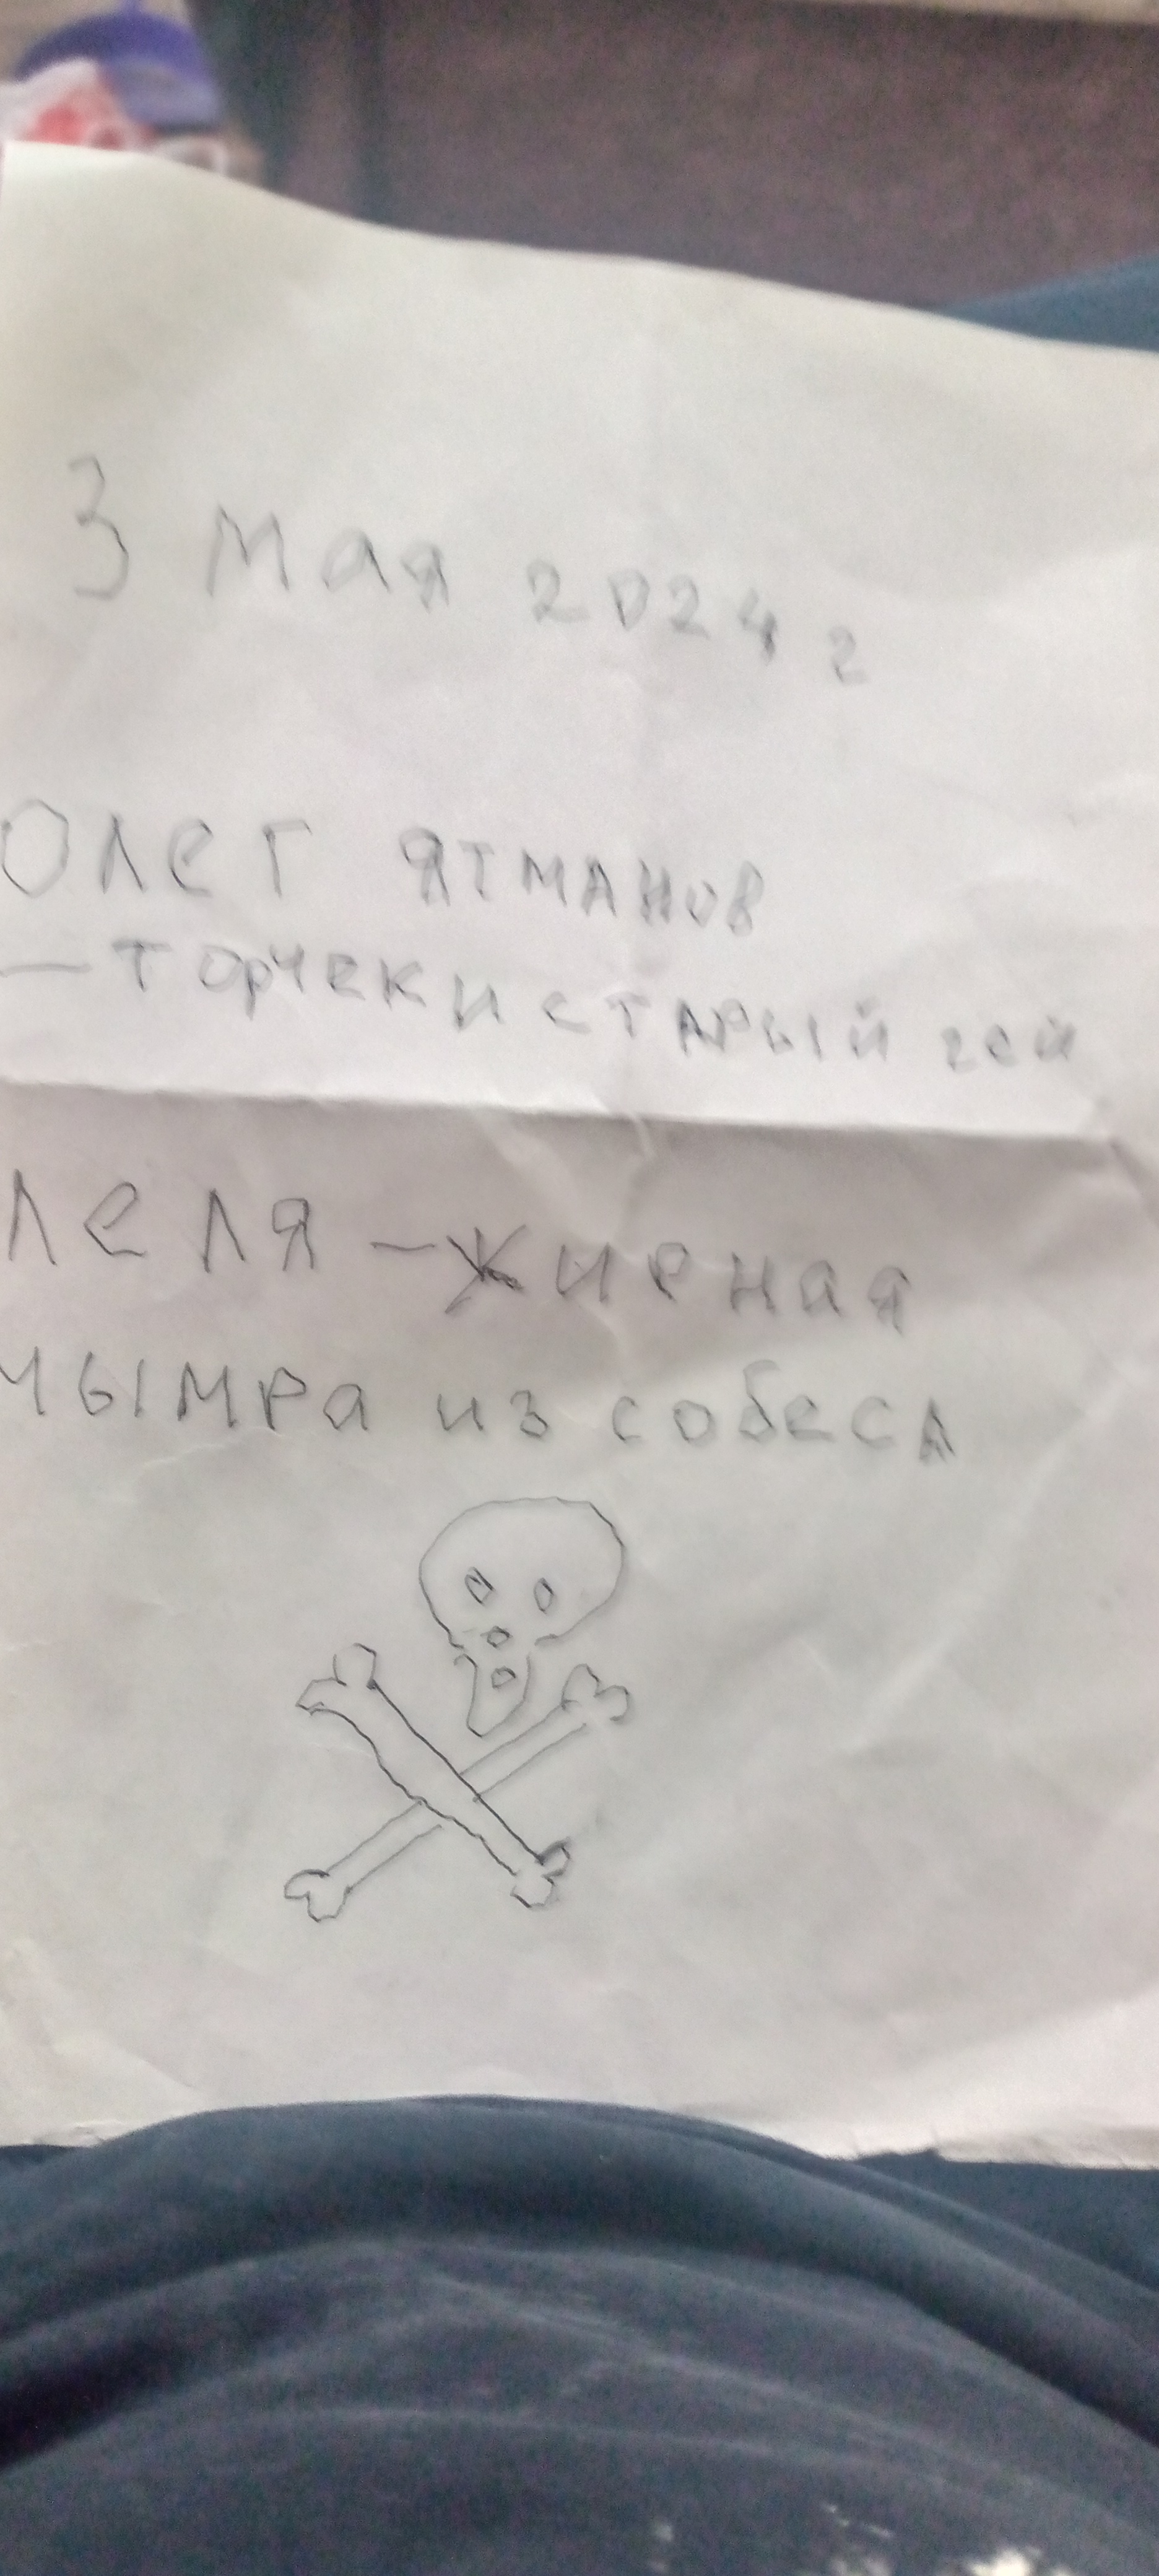 3 мая 2024 г
Олег ЯТМАНОВ
— ТОРЧЕК И СТАРЫЙ гей
ЛеЛЯ - жирная
мымра из собеса